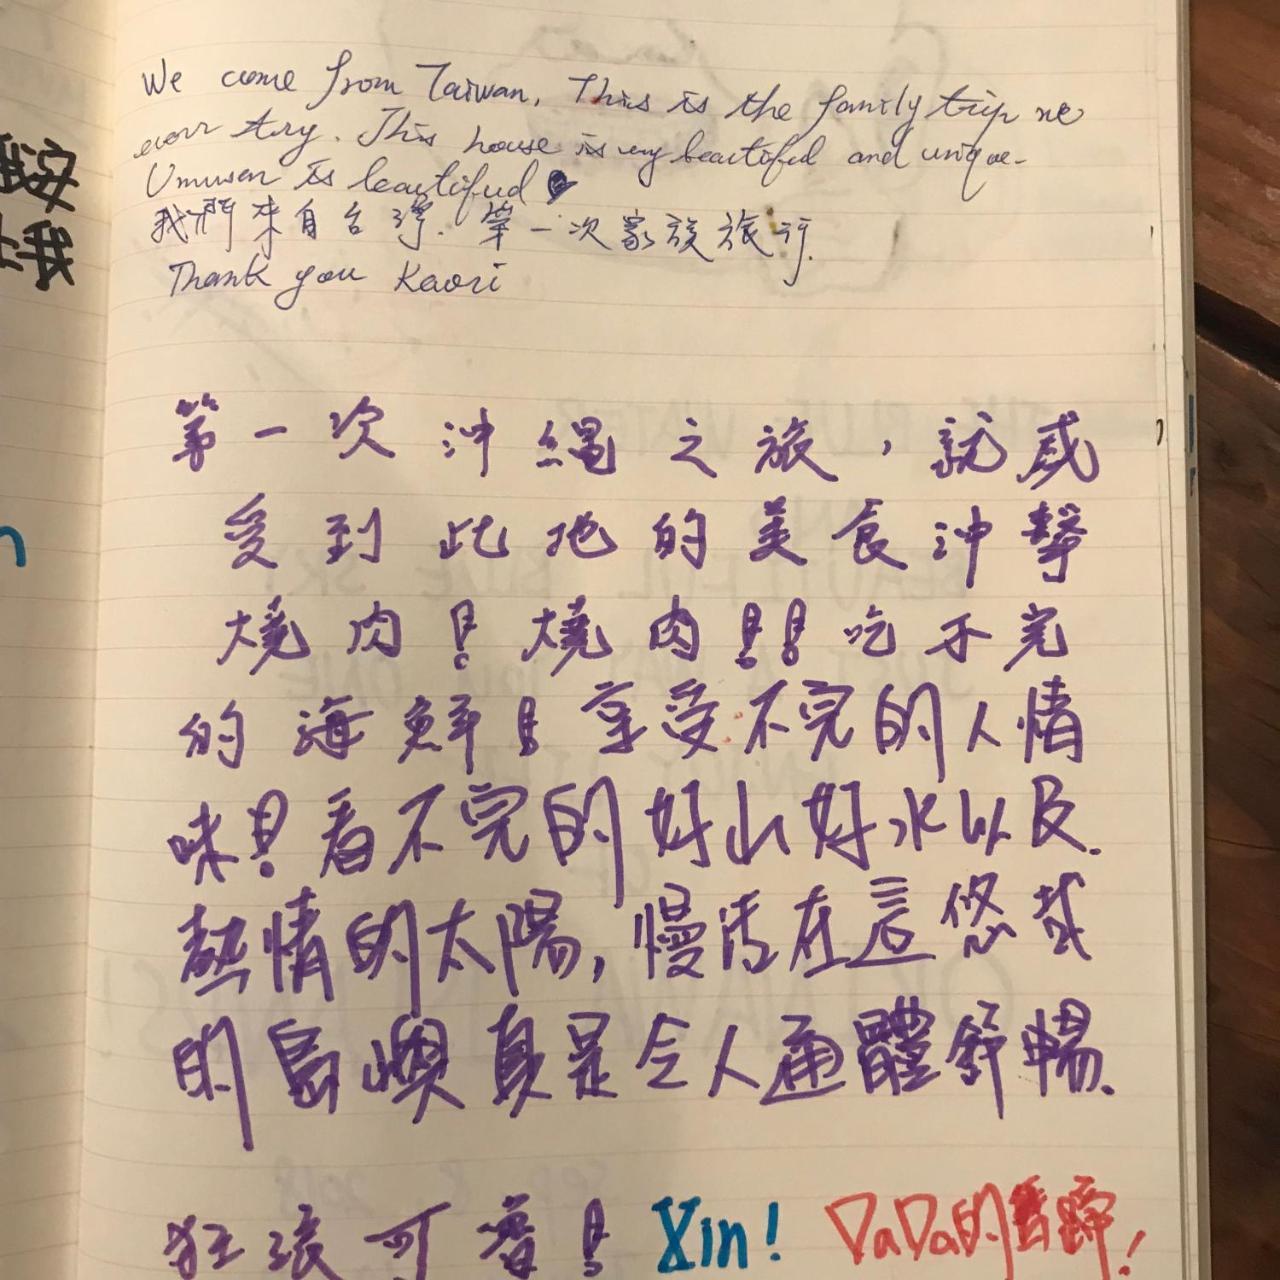 We come from Taiwan. This is the family trip we
ever try. This house is very beautiful and unique.
Umusun is beautiful
我們來自台灣. 第一次家族旅行.
Thank you Kaori
第一次沖繩之旅，就感
受到此地的美食沖擊
燒肉！燒肉！！吃不完
的海鮮！享受不完的人情
味！看不完的好山好水以及.
熱情的太陽，慢活在這悠哉
的島嶼真是令人通體舒暢.
狂浪可 ! Xin! DaDa的